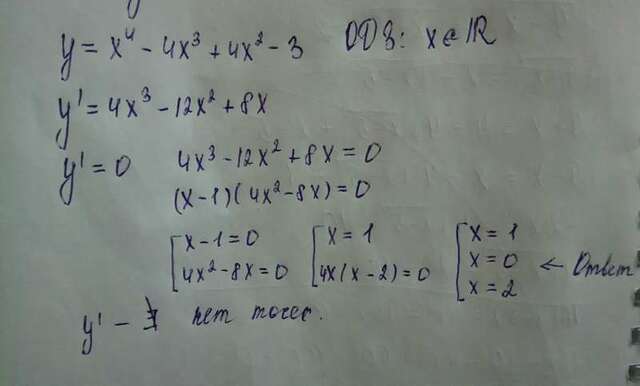 y = x⁴ - 4x³ + 4x² - 3 ОДЗ: x ∈ ℝ
y' = 4x³ - 12x² + 8x
y' = 0 4x³ - 12x² + 8x = 0
(x - 1)(4x² - 8x) = 0
[x - 1 = 0 [x = 1 [x = 1
[4x² - 8x = 0 [4x(x - 2) = 0 [x = 0 ← Ответ
[x = 2
y' - ∄ нет точек.